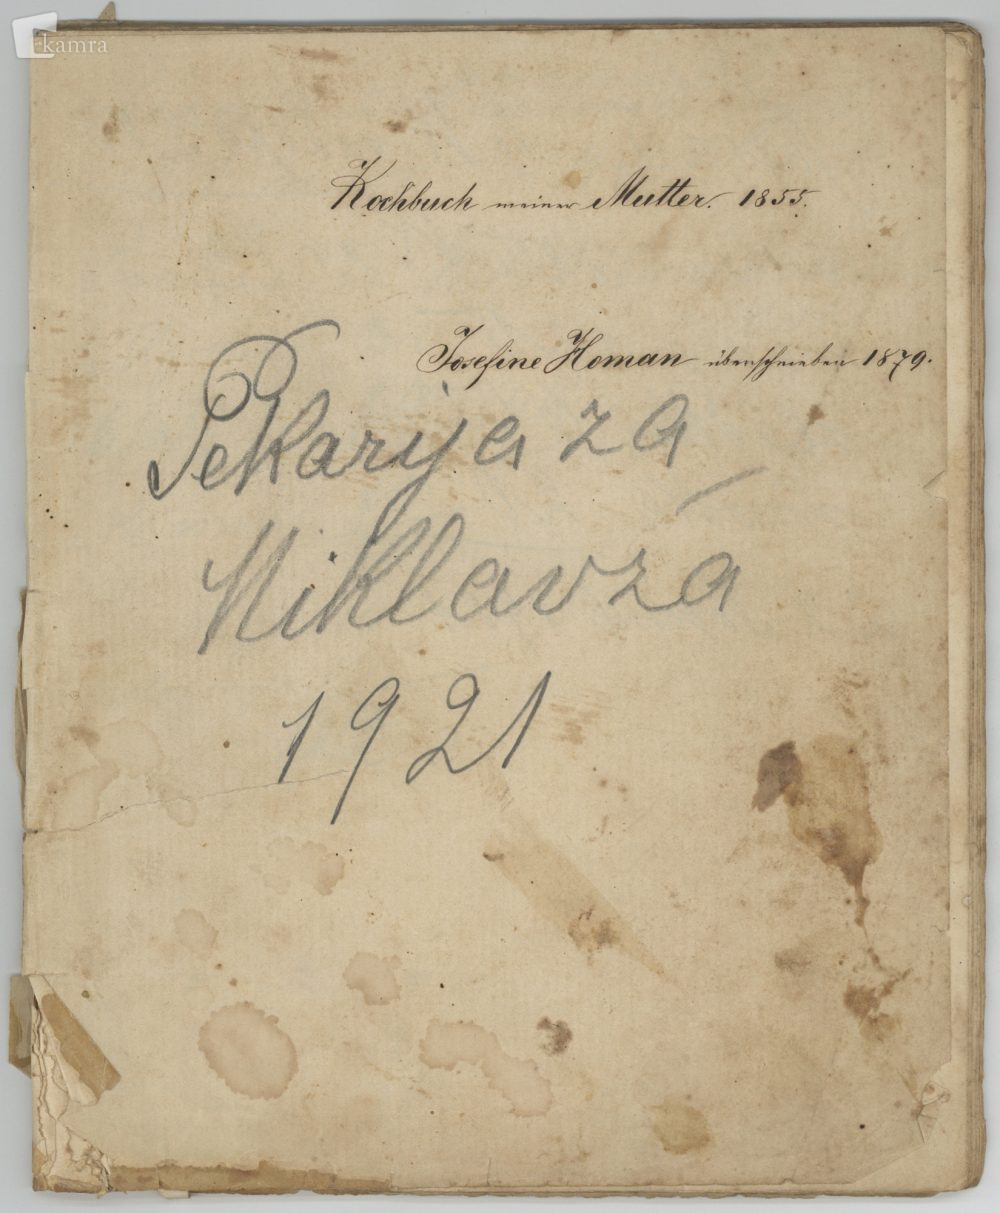 kamra
Kochbuch meiner Mutter. 1855.
Josefine Homan überschrieben 1879.
Pekarija za
Miklavža
1921